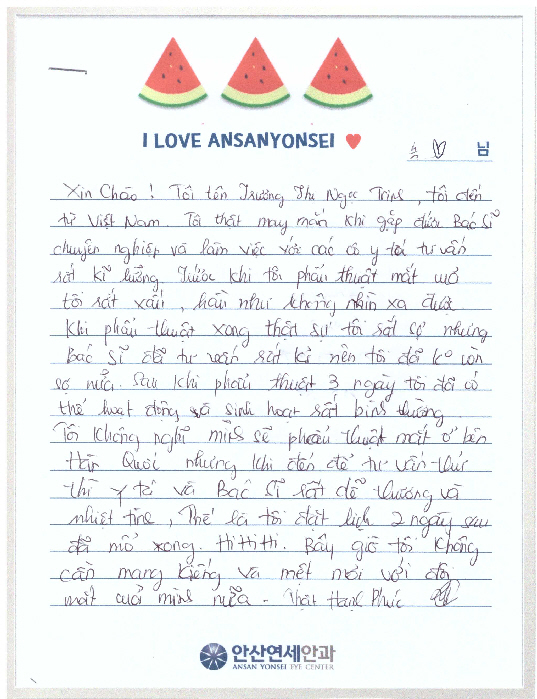 I LOVE ANSANYONSEI
님
Xin Chào ! Tôi tên Trương Thị Ngọc Trinh, tôi đến
từ Việt Nam. Tôi thật may mắn khi gặp được Bác Sĩ
chuyên nghiệp và làm việc với các cô y tá tư vấn
rất kĩ lưỡng. Trước khi tôi phẫu thuật mắt
tôi rất xấu, hầu như không nhìn xa được
Khi phẫu thuật xong thật sự tôi rất sợ nhưng
Bác Sĩ đã tư vấn rất kĩ nên tôi đã ko còn
sợ nữa. Sau khi phẫu thuật 3 ngày tôi đã có
thể hoạt động và sinh hoạt rất bình thường
Tôi không nghĩ mình sẽ phẫu thuật mắt ở bên
Hàn Quốc nhưng khi đến để tư vấn thử
thì y tá và Bác Sĩ rất dễ thương và
nhiệt tình, Thế là tôi đặt lịch 2 ngày sau
đã mổ xong. Hi Hi Hi. Bây giờ tôi không
cần mang kiếng và mệt mỏi với đôi
mắt của mình nữa - Thật Hạnh Phúc
안산연세안과
ANSAN YONSEI EYE CENTER